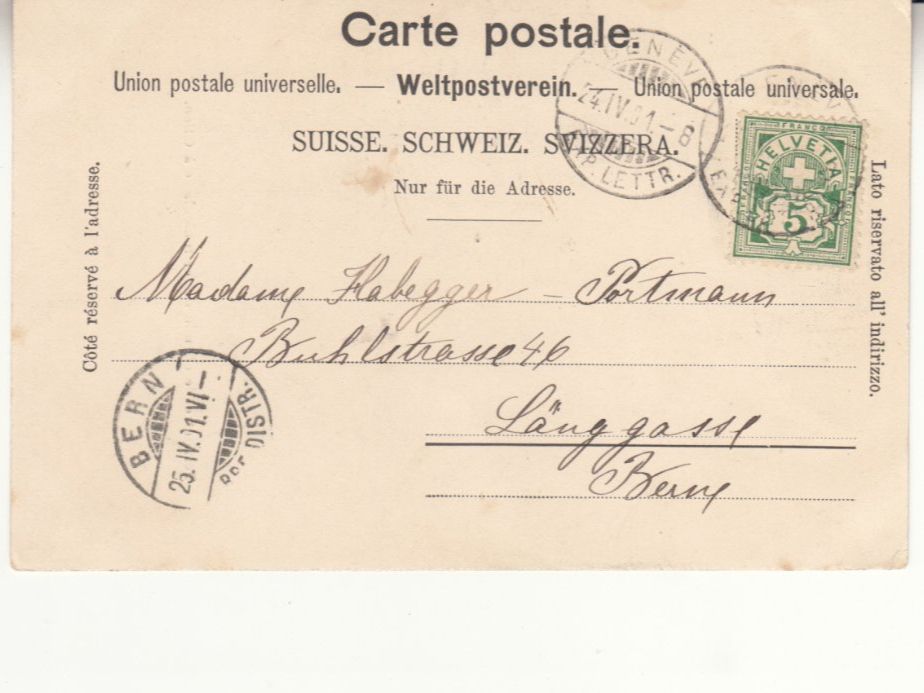 Carte postale.
Union postale universelle. — Weltpostverein. — Union postale universale.
SUISSE. SCHWEIZ. SVIZZERA.
Nur für die Adresse.
Côté réservé à l'adresse.
Lato riservato all' indirizzo.
GENÈVE
24.IV.01.–8
EXP. LETTR.
FRANCO
HELVETIA
5
Madame Habegger – Portmann
Buhlstrasse 46
Länggasse
Berne
BERN
25.IV.01.VI–